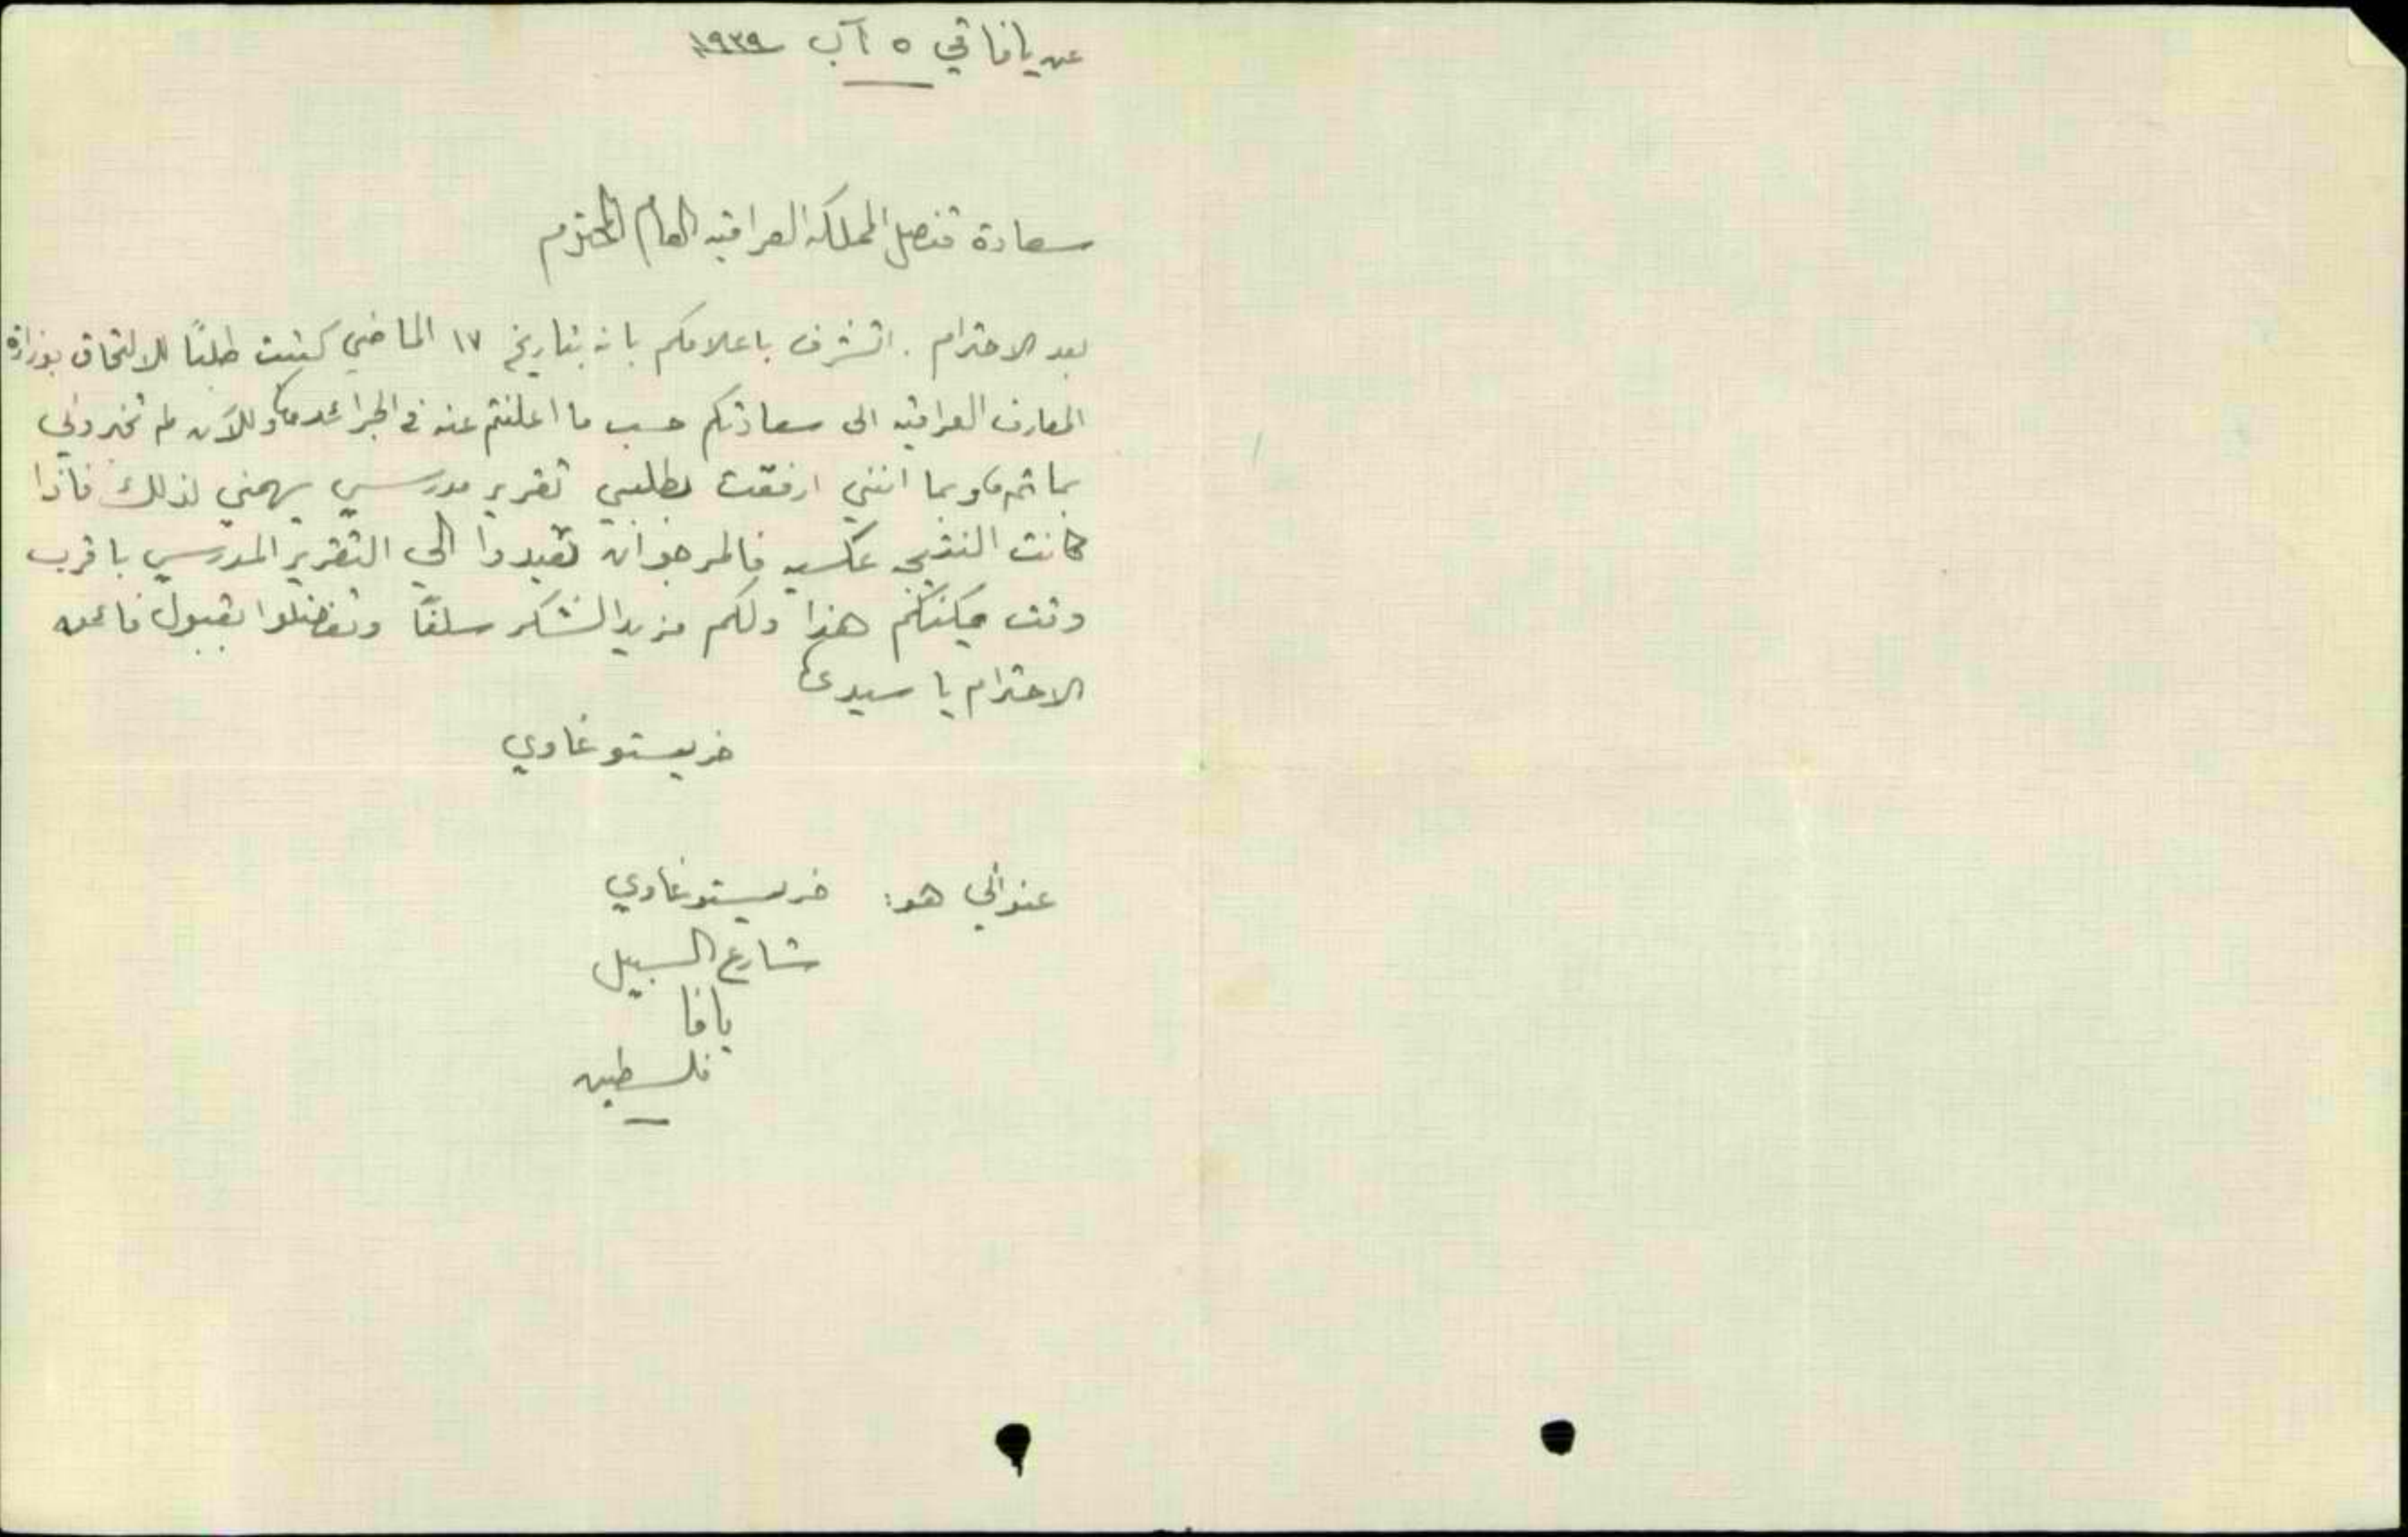 عن يافا في ٥ آب ١٩٣٩
سعادة قنصل المملكة العراقيه العام المحترم
بعد الاحترام . اتشرف باعلامكم بانه بتاريخ ١٧ الماضي كتبت طلبًا للالتحاق بوزارة
المعارف العراقيه الى سعادتكم حسب ما اعلنتم عنه في الجرائد، وللآن لم تخبروني
بما تم، وبما انني ارفقت بطلبي تقرير مدرسي يهمني لذلك فاذا
كانت النتيجه عكسيه فالمرجو ان تعيدوا الي التقرير المدرسي باقرب
وقت يمكنكم هذا ولكم مزيد الشكر سلفًا وتفضلوا بقبول فائق
الاحترام يا سيدي،
خريستو غاوي
عنواني هو: خريستو غاوي
شارع السبيل
يافا
فلسطين